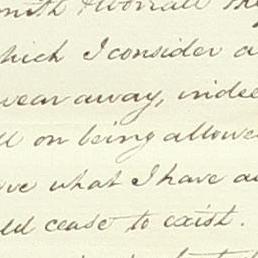 which I consider a
wear away, indee
ll on being allowe
ve what I have a
ld cease to exist.